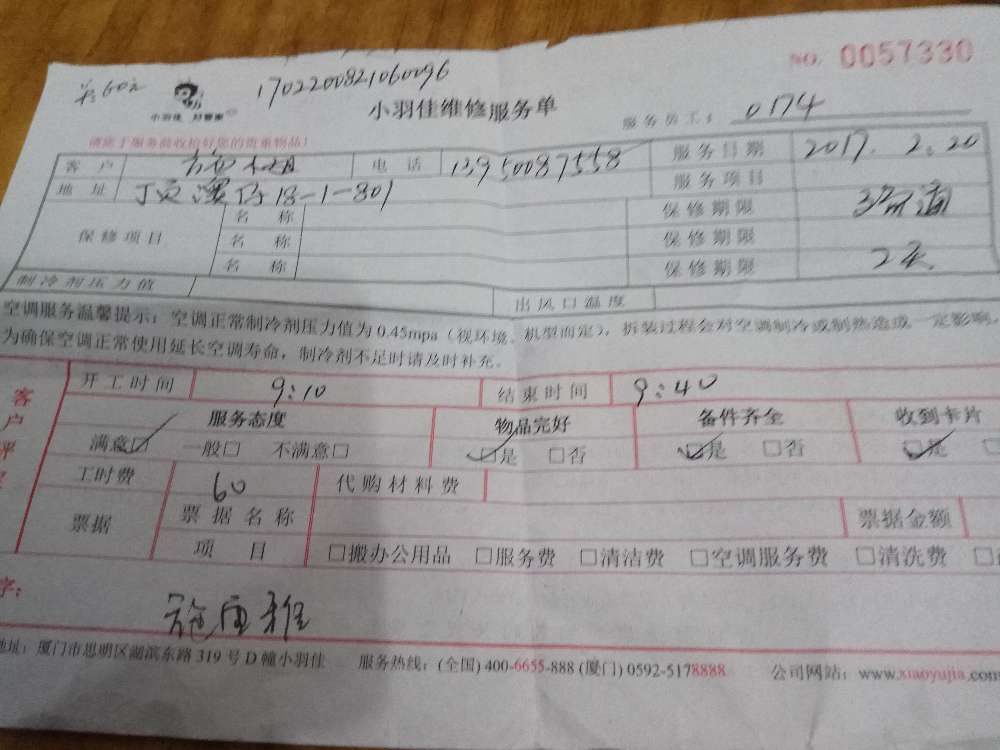 NO. 0057330
差60元 1702200821060096
小羽佳 好管家 小羽佳维修服务单 服务员工: 0174
请您于服务前收拾好您的贵重物品!
客户 电话 13950087558 服务日期 2017.2.20
地址 18-1-801 服务项目
保修项目 名称 保修期限
名称 保修期限
名称 保修期限 2天
制冷剂压力值 出风口温度
空调服务温馨提示:空调正常制冷剂压力值为0.45mpa(视环境、机型而定),拆装过程会对空调制冷或制热造成一定影响,
为确保空调正常使用延长空调寿命,制冷剂不足时请及时补充。
客户评
开工时间 9:10 结束时间 9:40
服务态度 物品完好 备件齐全 收到卡片
满意☑ 一般□ 不满意□ ☑是 □否 ☑是 □否 ☑是
工时费 60 代购材料费
票据 票据名称 票据金额
项目 □搬办公用品 □服务费 □清洁费 □空调服务费 □清洗费
字:
地址:厦门市思明区湖滨东路319号D幢小羽佳 服务热线:(全国)400-6655-888 (厦门)0592-5178888 公司网站:www.xiaoyujia.com